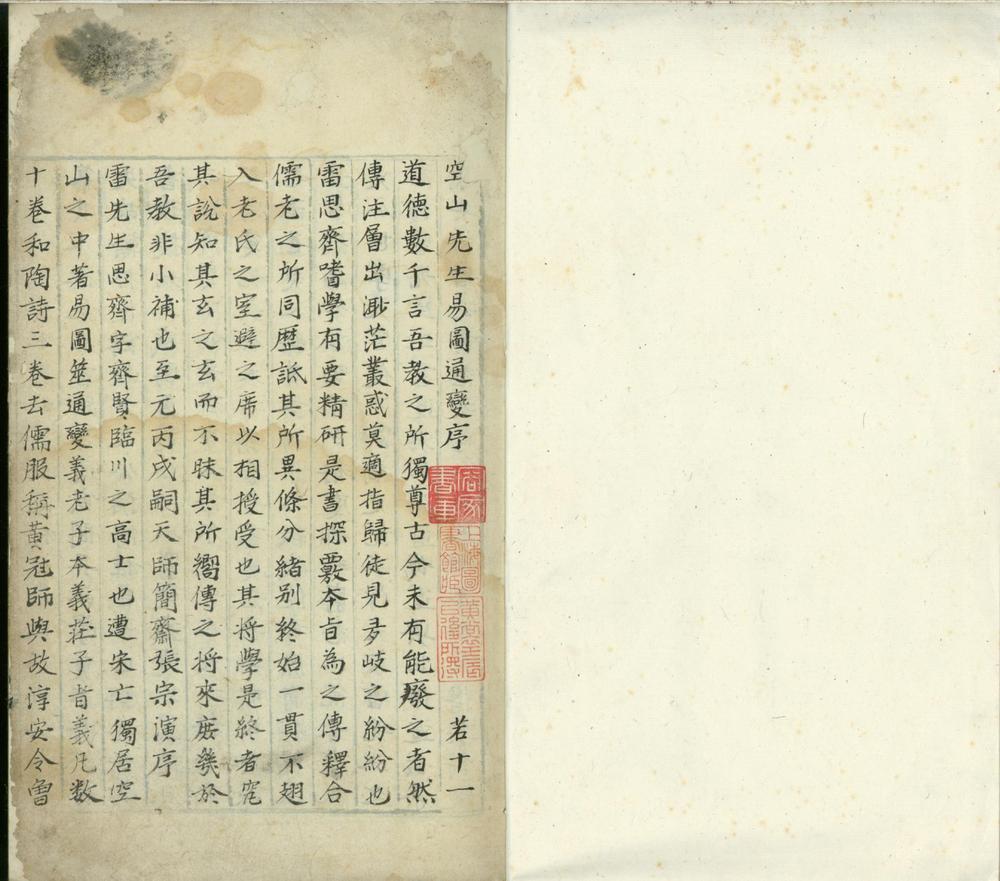 空山先生易圖通變序 若十一
道德數千言吾教之所獨尊古今未有能廢之者然
傳注層出渺茫叢惑莫適指歸徒見多岐之紛紛也
雷思齊嗜學有要精研是書探覈本旨為之傳釋合
儒老之所同歷詆其所異條分緒别終始一貫不翅
入老氏之室避之席以相授受也其將學是終者究
其說知其玄之玄而不昧其所嚮傳之將來庶幾於
吾教非小補也至元丙戌嗣天師簡齋張宗演序
雷先生思齊字齊賢臨川之高士也遭宋亡獨居空
山之中著易圖筮通變義老子本義莊子旨義凡数
十卷和陶詩三卷去儒服稱黄冠師與故淳安令曾
上海圖書館